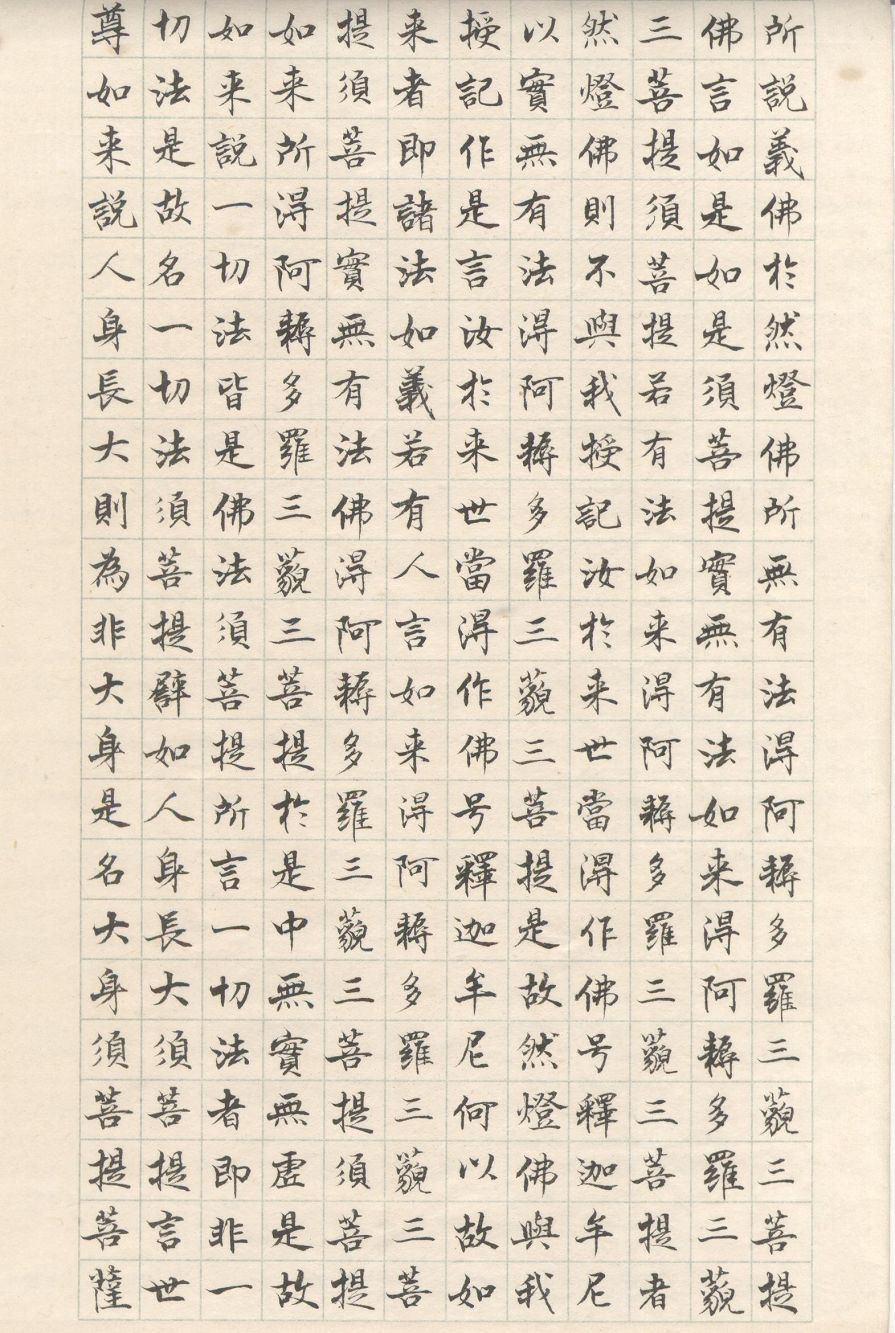 所説義佛於然燈佛所無有法得阿耨多羅三藐三菩提
佛言如是如是須菩提實無有法如来得阿耨多羅三藐
三菩提須菩提若有法如来得阿耨多羅三藐三菩提者
然燈佛則不與我授記汝於来世當得作佛号釋迦牟尼
以實無有法得阿耨多羅三藐三菩提是故然燈佛與我
授記作是言汝於来世當得作佛号釋迦牟尼何以故如
来者即諸法如義若有人言如来得阿耨多羅三藐三菩
提須菩提實無有法佛得阿耨多羅三藐三菩提須菩提
如来所得阿耨多羅三藐三菩提於是中無實無虛是故
如来説一切法皆是佛法須菩提所言一切法者即非一
切法是故名一切法須菩提譬如人身長大須菩提言世
尊如来説人身長大則為非大身是名大身須菩提菩薩